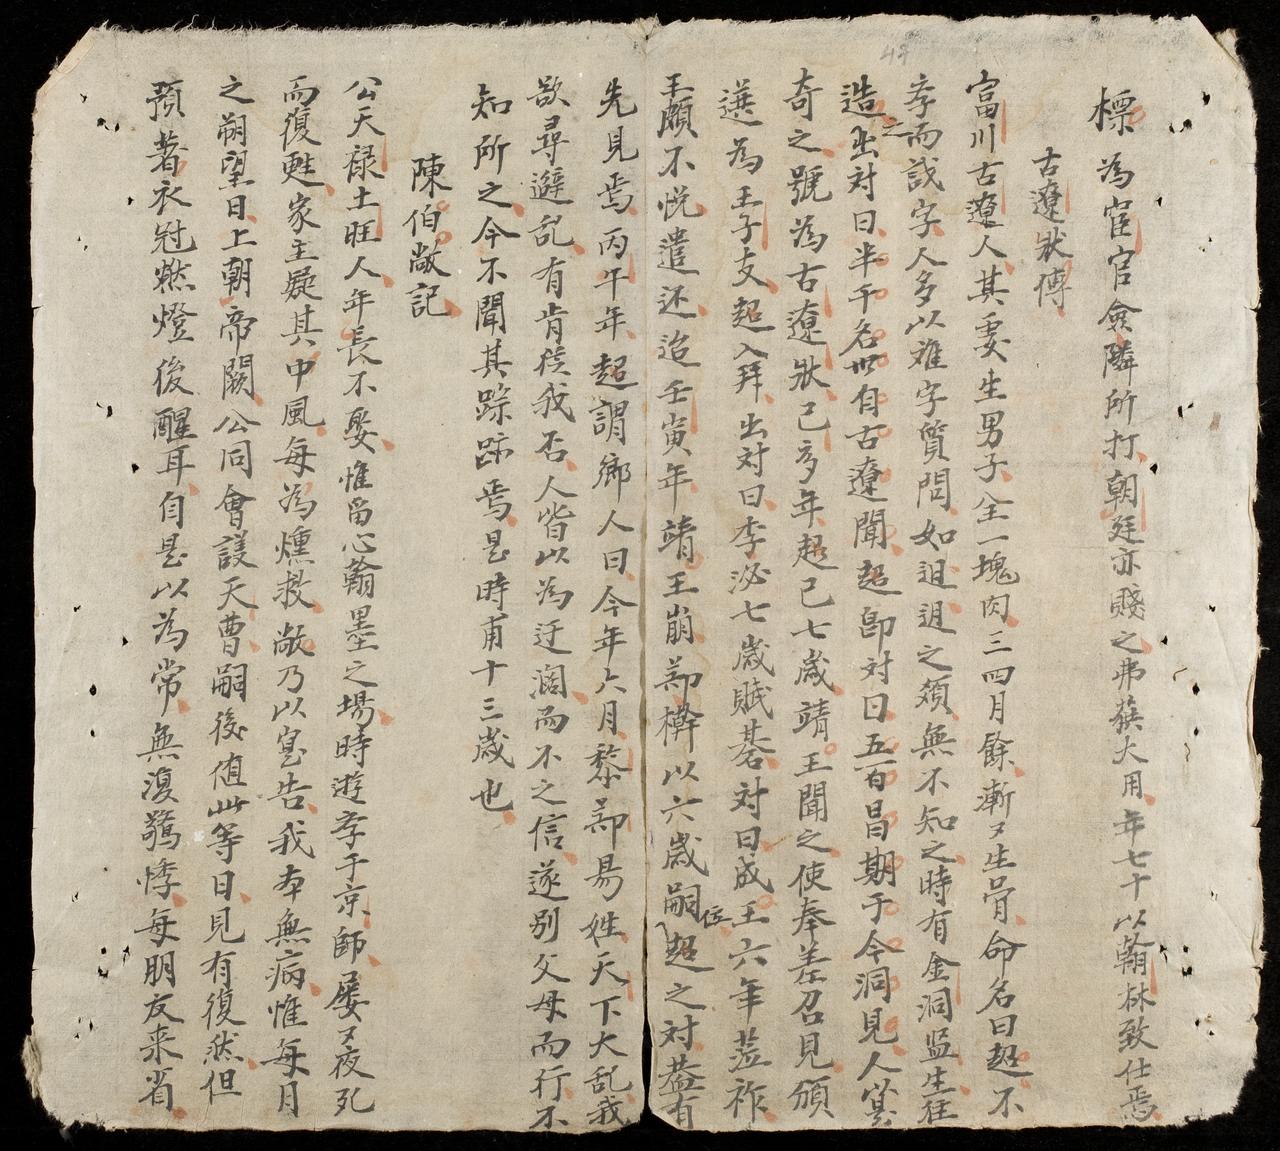 標 為宦官僉隣所打朝廷亦賤之弗獲大用年七十以翰林致仕焉
古遼狀傳
富川古遼人其妻生男子全一塊肉三四月餘漸々生骨命名曰超不
孝而識字人多以难字質問如迌迌之類無不知之時有金洞监生往
造之出対曰半千名世自古遼聞超即対曰五百昌期于今洞見人箕
奇之號為古遼狀己亥年超已七歲靖王聞之使奉差召見頒
選為王子支超入拜出対曰李泌七歲賦棊対曰成王六年蒞祚
王頗不悅遣还迨壬寅年靖王崩鄭檊以六歲嗣位超之対盖有
先見焉丙午年超謂鄉人曰今年六月黎鄭昜姓天下大乱我
欲尋避乱有肯從我否人皆以為迂濶而不之信遂別父母而行不
知所之今不聞其踪跡焉是時甫十三歲也
陳伯敞記
公天禄土旺人年長不娶惟留心翰墨之場時遊孛于京師屡々夜死
而復甦家主疑其中風每為燻救敞乃以寔告我本無病惟每月
之朔望日上朝帝闕公同會議天曹嗣後值此等日見有復然但
預著衣冠燃燈後醒耳自是以為常無復驚悸每朋友来省
47